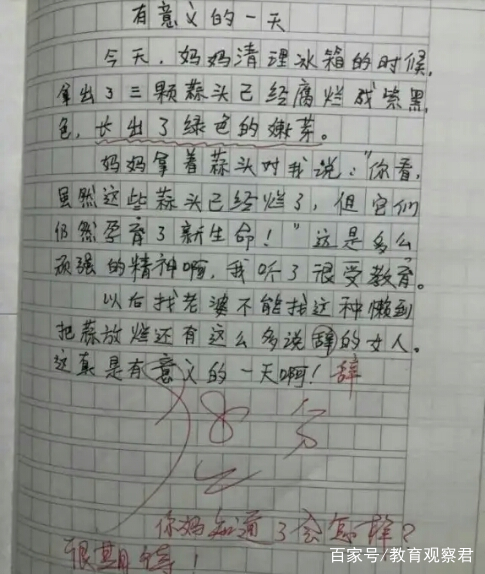 有意义的一天
今天，妈妈清理冰箱的时候，
拿出了三颗蒜头已经腐烂成紫黑
色，长出了绿色的嫩芽。
妈妈拿着蒜头对我说："你看，
虽然这些蒜头已经烂了，但它们
仍然孕育了新生命！"这是多么
顽强的精神啊，我听了很受教育。
以后找老婆不能找这种懒到
把蒜放烂还有这么多说辞的女人。
这真是有意义的一天啊！辞
你妈知道了会怎样？
很期待！
百家号/教育观察君